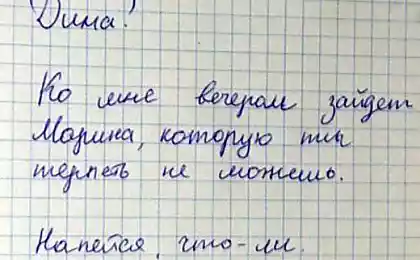 Дима!
Ко мне вечером зайдет
Марина, которую ты
терпеть не можешь.
Напейся, что-ли.